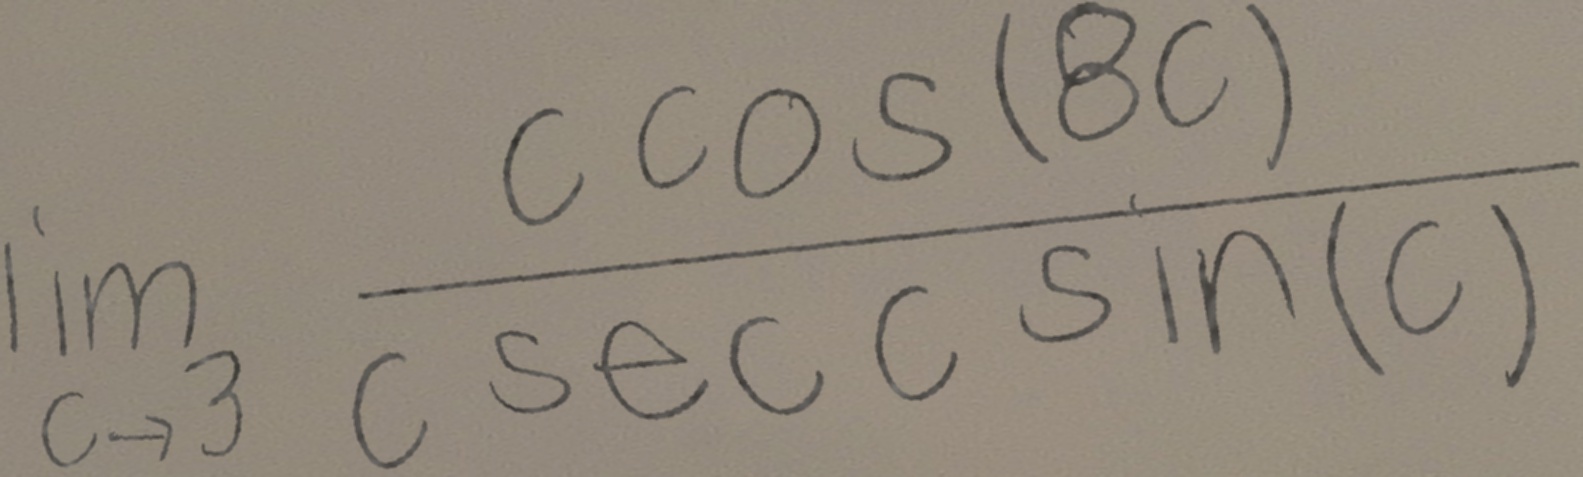 lim c→3 c cos(8c) / c sec c sin(c)